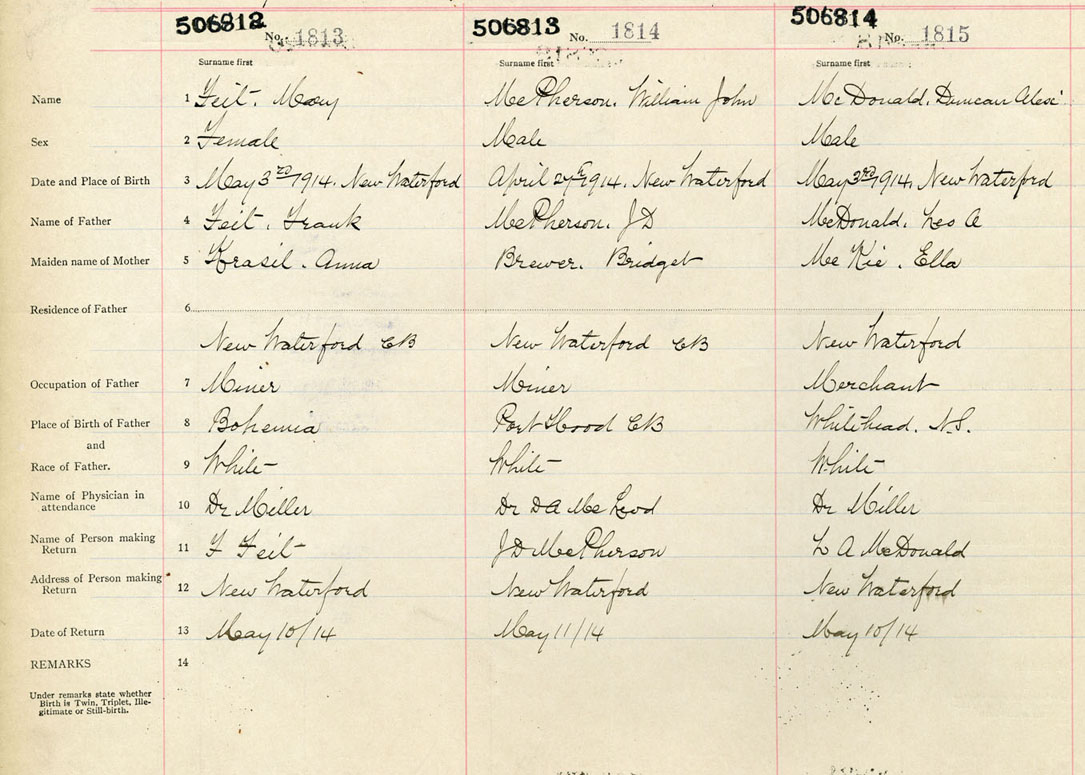 506812 No. 1813 506813 No. 1814 506814 No. 1815
Surname first Surname first Surname first
Name 1 Feit. Mary McPherson. William John McDonald. Duncan Alex
Sex 2 Female Male Male
Date and Place of Birth 3 May 3rd 1914. New Waterford April 27th 1914. New Waterford May 3rd 1914. New Waterford
Name of Father 4 Feit. Frank McPherson. JD McDonald. Leo A
Maiden name of Mother 5 Krasil. Anna Brewer. Bridget McKie. Ella
Residence of Father 6
New Waterford CB New Waterford CB New Waterford
Occupation of Father 7 Miner Miner Merchant
Place of Birth of Father 8 Bohemia Port Hood CB Whitehead. N.S.
and
Race of Father. 9 White White White
Name of Physician in
attendance 10 Dr Miller Dr DA McLeod Dr Miller
Name of Person making
Return 11 F Feit JD McPherson L A McDonald
Address of Person making
Return 12 New Waterford New Waterford New Waterford
Date of Return 13 May 10/14 May 11/14 May 10/14
REMARKS 14
Under remarks state whether
Birth is Twin, Triplet, Ille-
gitimate or Still-birth.